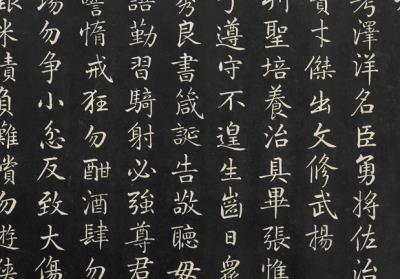 考澤洋名臣勇將佐治
賁卞傑出文修武揚
列聖培養治具畢張惟
遵守不遑生齒日眾
秀良書箴誕告敬聽毋
語勤習騎射必強尊君
詈惰戒狂勿酣酒肆勿
場勿争小忿反致大傷
米債負難償勿遊